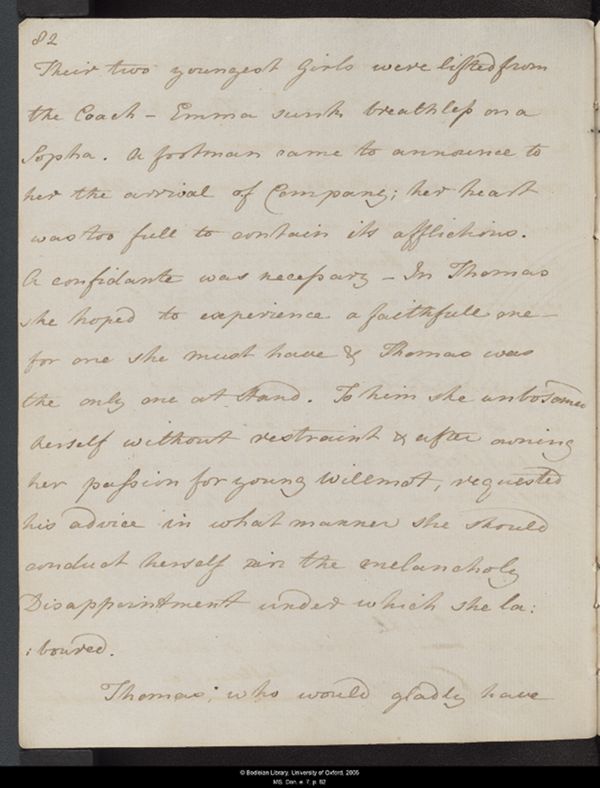 82
Their two youngest Girls were lifted from
the Coach - Emma sunk breathless on a
Sopha. A footman came to announce to
her the arrival of Company; her heart
was too full to contain its afflictions.
A confidante was necessary - In Thomas
she hoped to experience a faithfull one -
for one she must have & Thomas was
the only one at Hand. To him she unbosomed
herself without restraint & after owning
her passion for young Willmot, requested
his advice in what manner she should
conduct herself in the melancholy
Disappointment under which she la:
:boured.
Thomas, who would gladly have
© Bodleian Library, University of Oxford, 2005
MS. Don. e. 7, p. 82